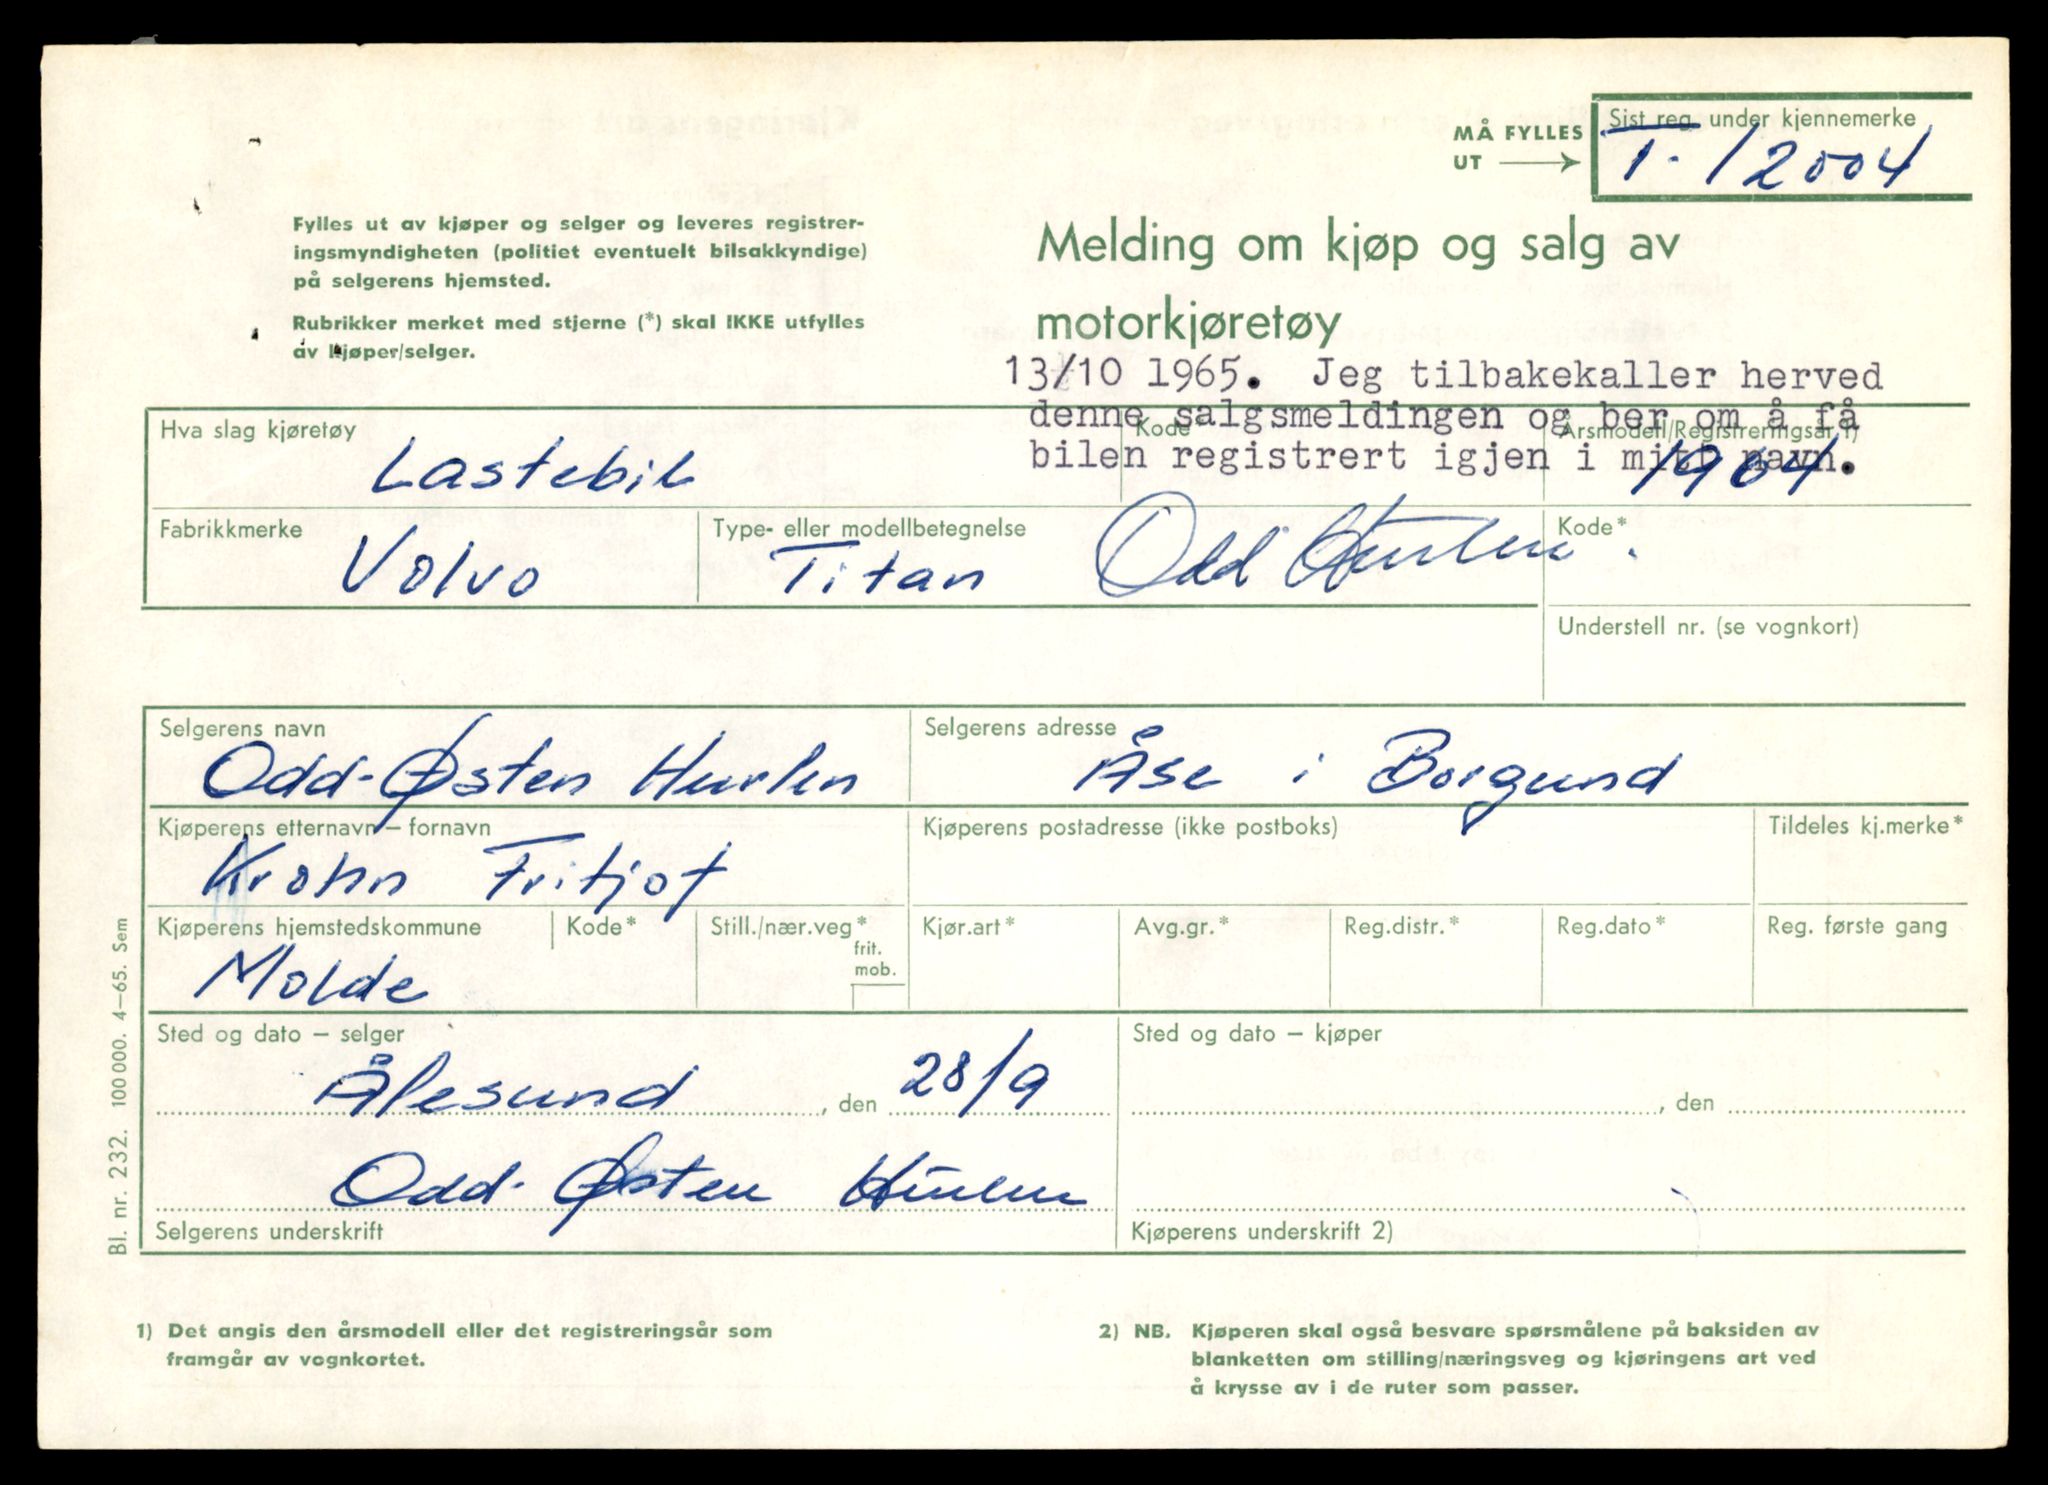 MÅ FYLLES
UT
Sist reg. under kjennemerke
T-12004
Fylles ut av kjøper og selger og leveres registrer-
ingsmyndigheten (politiet eventuelt bilsakkyndige)
på selgerens hjemsted.
Rubrikker merket med stjerne (*) skal IKKE utfylles
av kjøper/selger.
Melding om kjøp og salg av
motorkjøretøy
13/10 1965. Jeg tilbakekaller herved
denne salgsmeldingen og ber om å få
bilen registrert igjen i mitt navn.
Hva slag kjøretøy
Lastebil
Kode*
Årsmodell/Registreringsår 1)
1964
Fabrikkmerke
Volvo
Type- eller modellbetegnelse
Titan
Odd Hurlen
Kode*
Understell nr. (se vognkort)
Selgerens navn
Odd-Østen Hurlen
Selgerens adresse
Åse i Borgund
Kjøperens etternavn – fornavn
Krohn Fritjof
Kjøperens postadresse (ikke postboks)
Tildeles kj.merke*
Kjøperens hjemstedskommune
Molde
Kode*
Still./nær.veg*
frit.
mob.
Kjør.art*
Avg.gr.*
Reg.distr.*
Reg.dato*
Reg. første gang
Sted og dato – selger
Ålesund, den 28/9
Odd-Østen Hurlen
Selgerens underskrift
Sted og dato – kjøper
, den
Kjøperens underskrift 2)
Bl. nr. 232. 100 000. 4–65. Sem
1) Det angis den årsmodell eller det registreringsår som
framgår av vognkortet.
2) NB. Kjøperen skal også besvare spørsmålene på baksiden av
blanketten om stilling/næringsveg og kjøringens art ved
å krysse av i de ruter som passer.